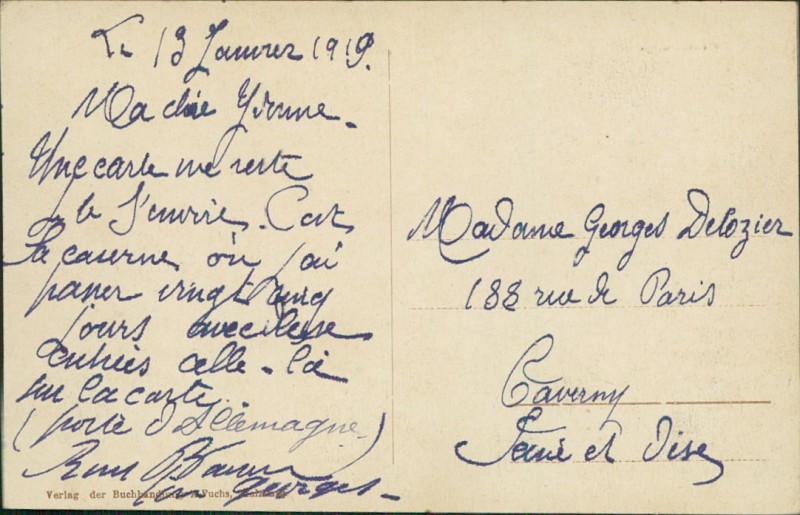 Le 13 Janvier 1919.
Ma chère Yvonne.
Une carte me reste
je te l'envoie. C'est
la caserne où j'ai
passer vingt cinq
jours
celle-là
sur la carte
(porte d'Allemagne)
Georges
Madame Georges Delozier
188 rue de Paris
Taverny
Seine et Oise
Verlag der Buchhandlung Fuchs,